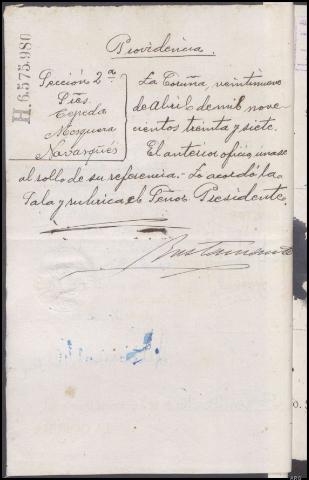 H.6.575.980
Providencia.
Sección 2ª
Sres.
Cepeda
Mosquera
Navarqués
La Coruña, veintinueve
de Abril de mil nove-
cientos treinta y siete.
El anterior oficio unase
al rollo de su referencia.- Lo acordó la
Sala y rubrica el Señor Presidente.